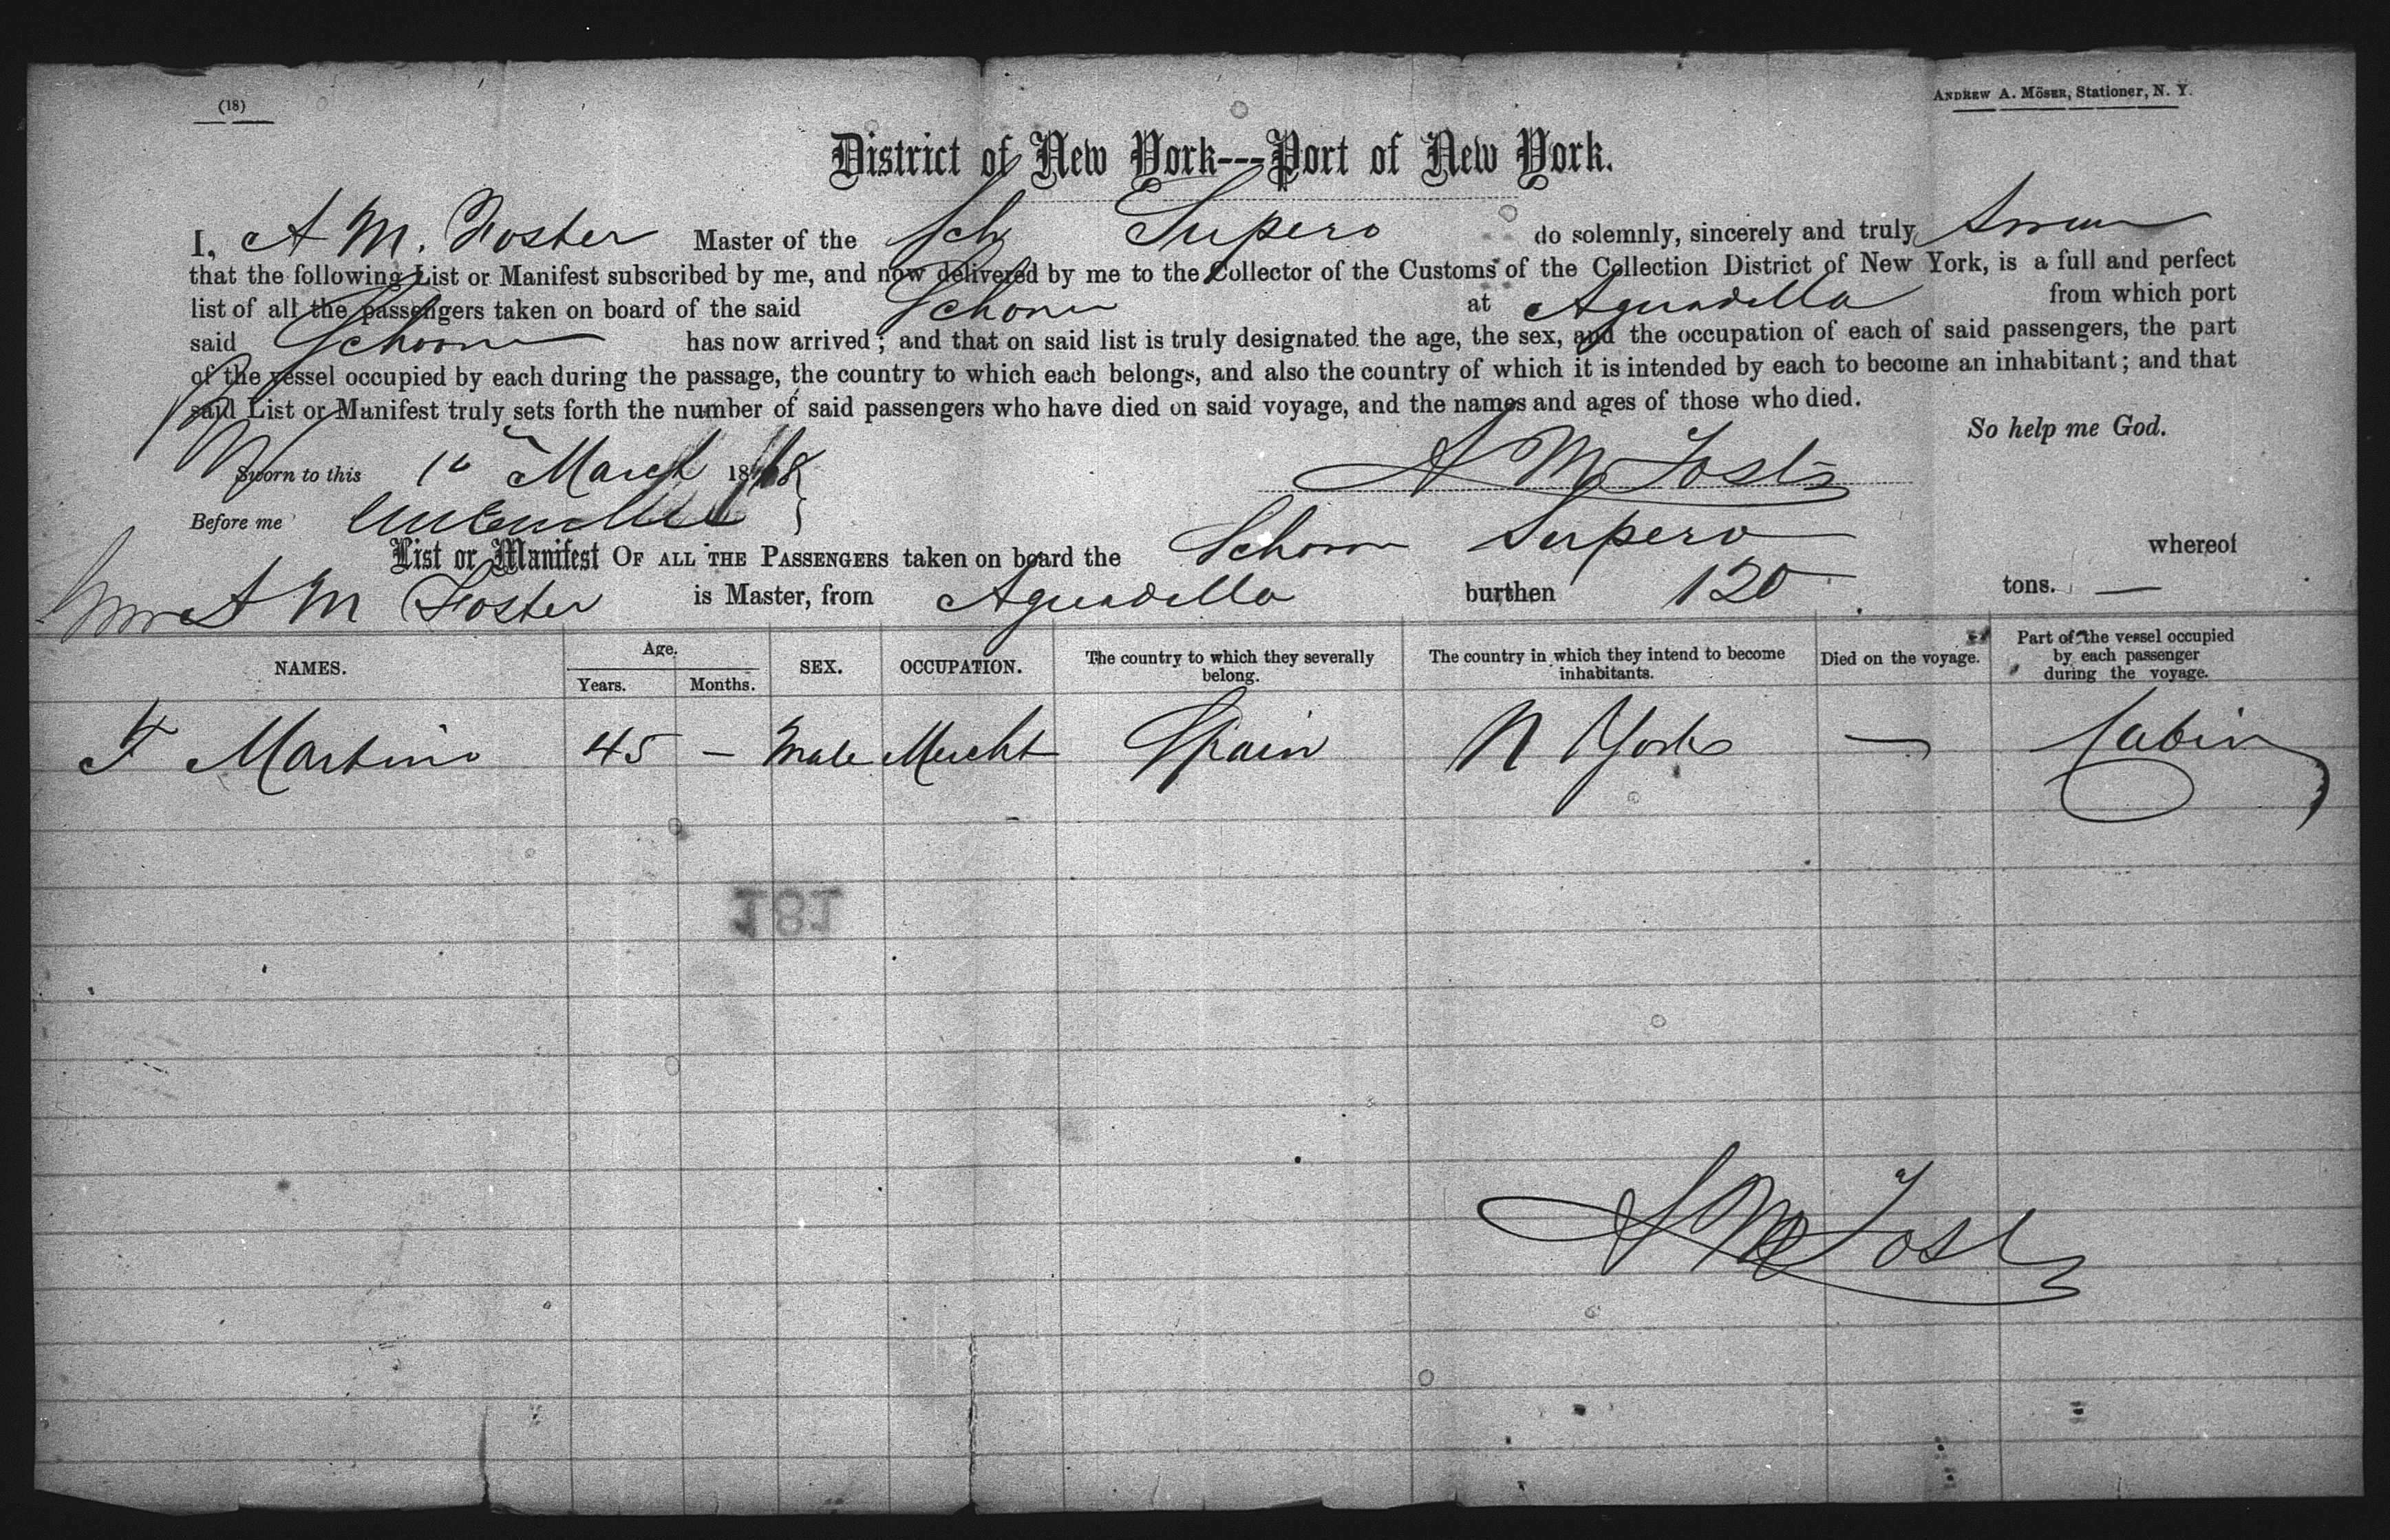 (18)
ANDREW A. MÖSER, Stationer, N. Y.
District of New York---Port of New York.
I, A M. Foster Master of the Sch Supero do solemnly, sincerely and truly
that the following List or Manifest subscribed by me, and now delivered by me to the Collector of the Customs of the Collection District of New York, is a full and perfect
list of all the passengers taken on board of the said Schonr at Aguadilla from which port
said Schoonr has now arrived; and that on said list is truly designated the age, the sex, and the occupation of each of said passengers, the part
of the vessel occupied by each during the passage, the country to which each belongs, and also the country of which it is intended by each to become an inhabitant; and that
said List or Manifest truly sets forth the number of said passengers who have died on said voyage, and the names and ages of those who died.
So help me God.
Sworn to this 16 March 1868 A M Foster
Before me
List or Manifest OF ALL THE PASSENGERS taken on board the Schonr Supero whereof
A M Foster is Master, from Aguadilla burthen 120 tons. —
NAMES. Age. Years. Months. SEX. OCCUPATION. The country to which they severally belong. The country in which they intend to become inhabitants. Died on the voyage. Part of the vessel occupied by each passenger during the voyage.
F Martino 45 — Male Mercht Spain N York — Cabin
181
A M Foster